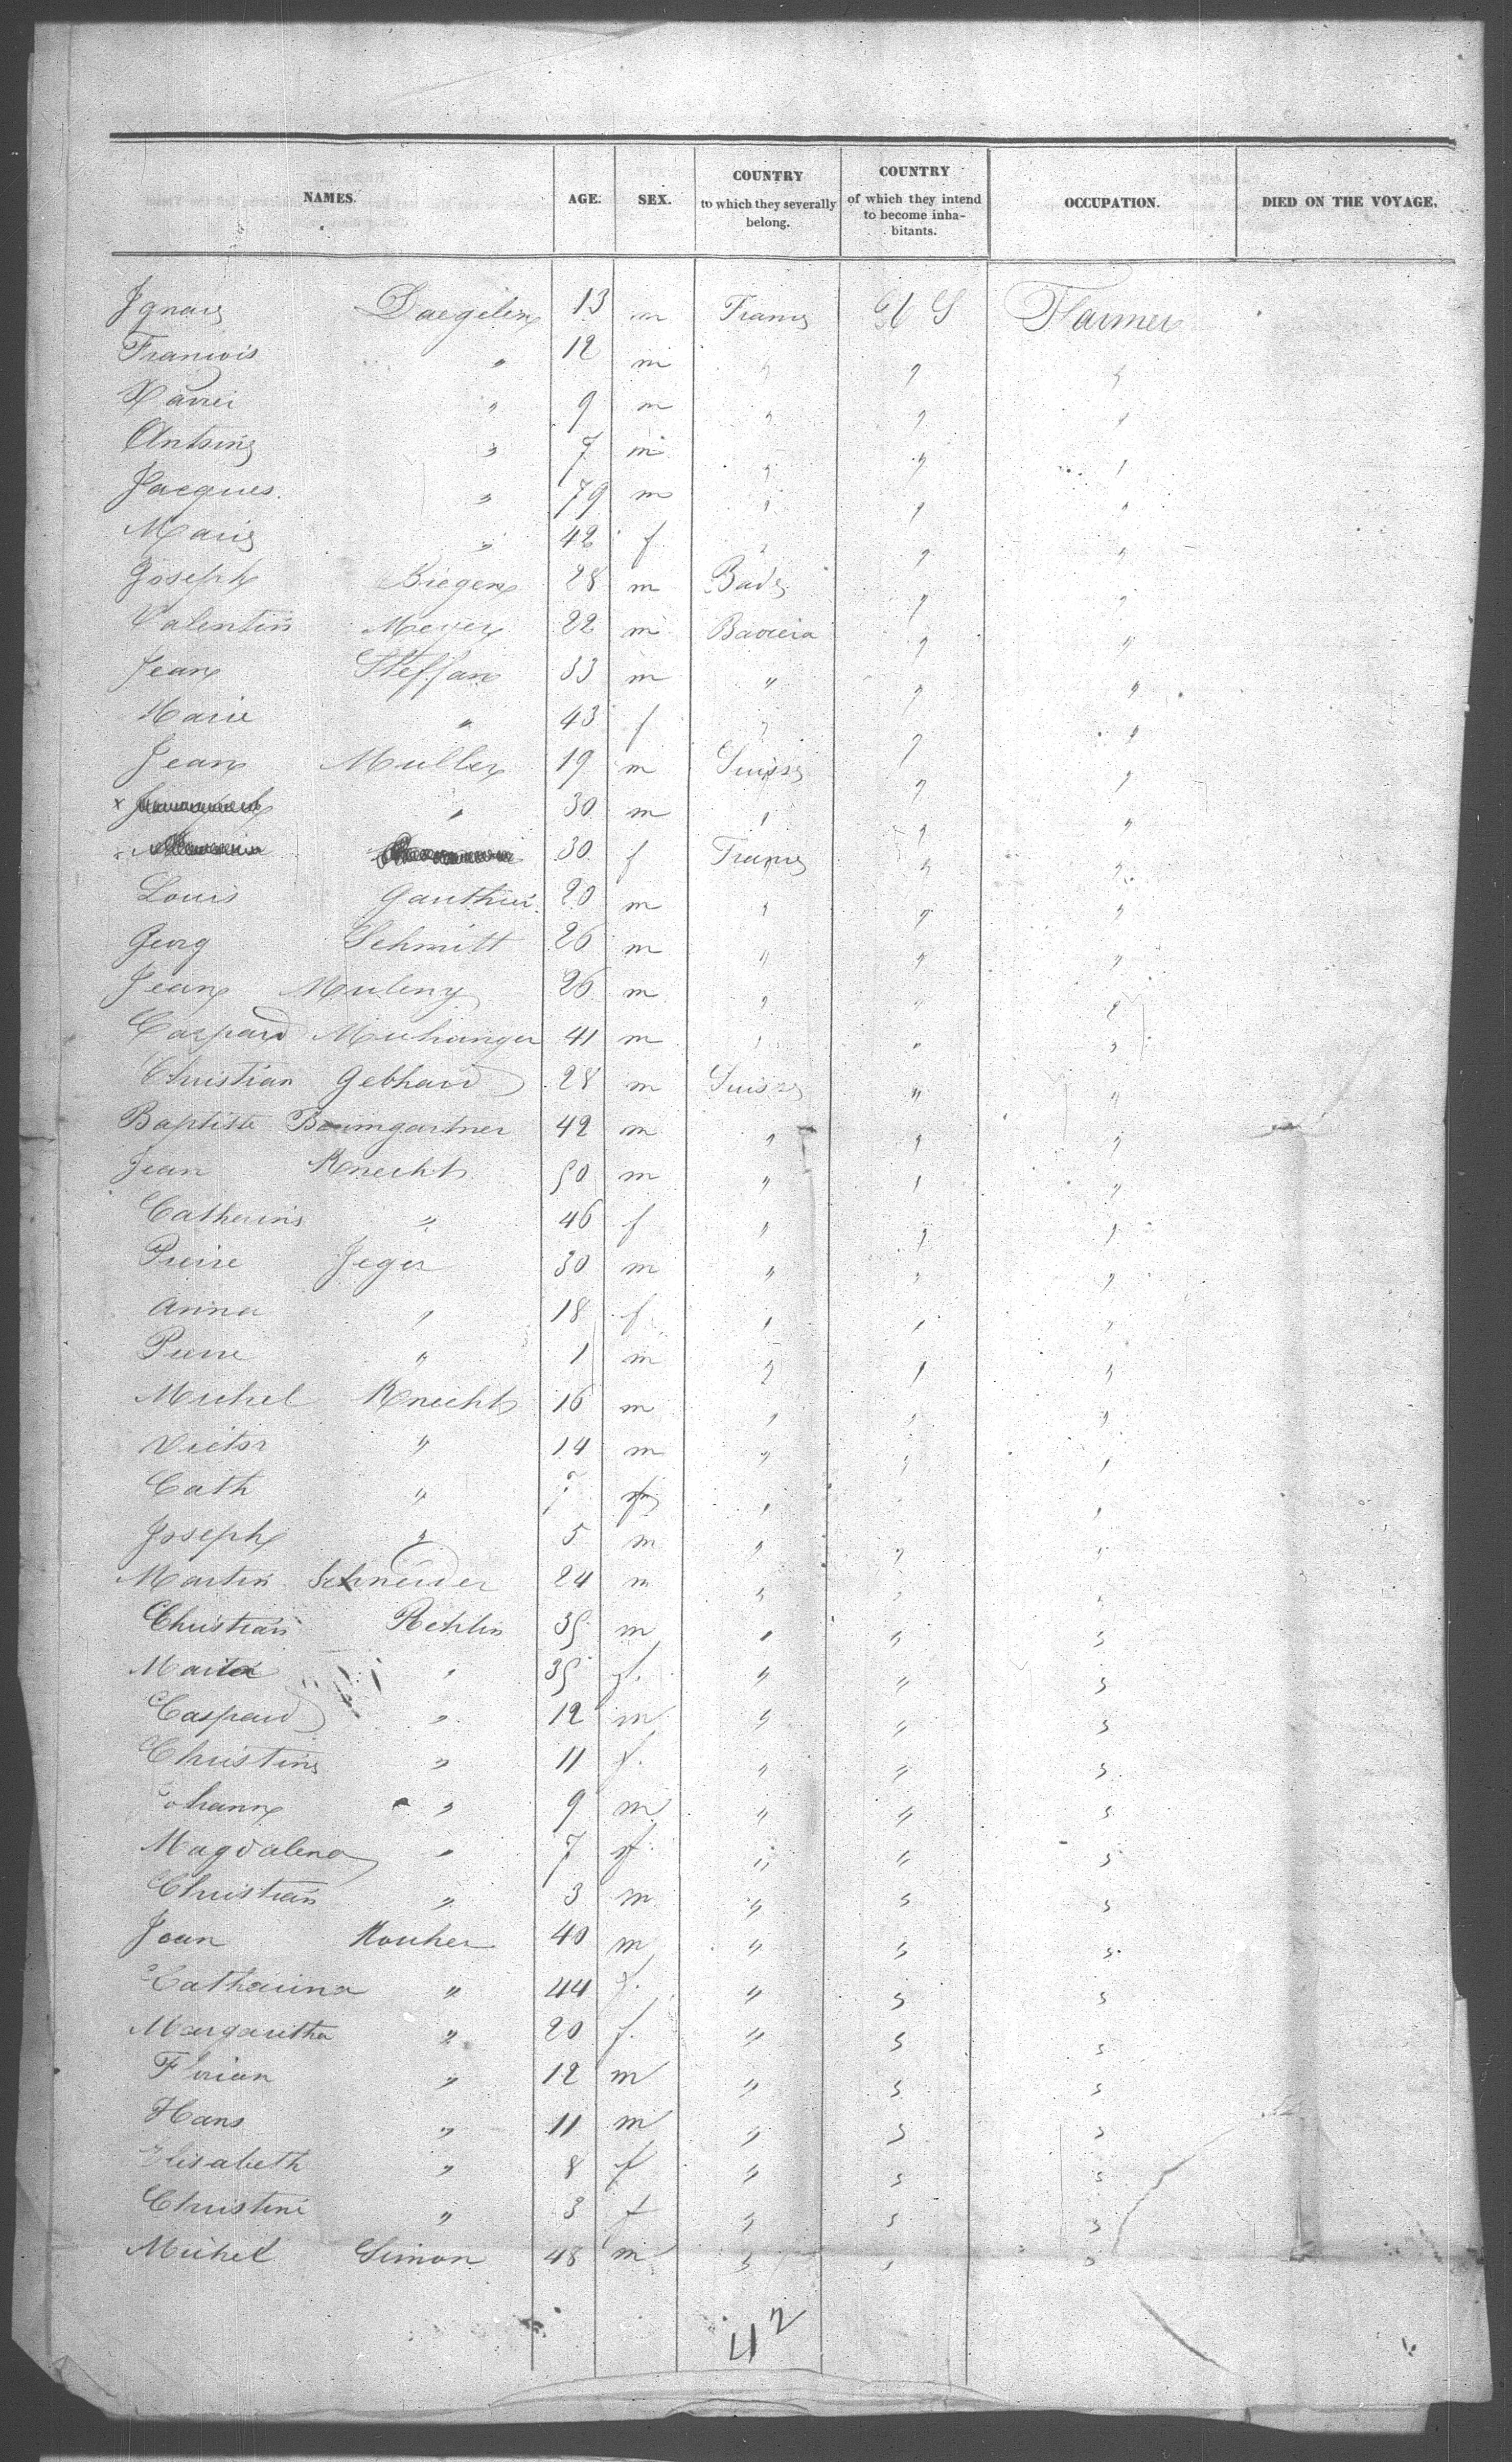 NAMES. AGE. SEX. COUNTRY to which they severally belong. COUNTRY of which they intend to become inhabitants. OCCUPATION. DIED ON THE VOYAGE.
Ignace Daegelen 13 m France U S Farmer
Francois " 12 m " " "
Xavier " 9 m " " "
Antoine " 7 m " " "
Jacques " 79 m " " "
Marie " 42 f " " "
Joseph Biegen 28 m Bade " "
Valentin Meyer 22 m Baviera " "
Jean Steffan 33 m " " "
Marie " 43 f " " "
Jean Muller 19 m Suisse " "
" 30 m " " "
30 f France " "
Louis Gauthier 20 m " " "
Georg Schmitt 26 m " " "
Jean Muleny 26 m " " "
Caspard 41 m " " "
Christian Gebhard 28 m Suisse " "
Baptiste Baumgartner 42 m " " "
Jean Knecht 50 m " " "
Catherine " 46 f " " "
Pierre Jeger 30 m " " "
Anna " 18 f " " "
Pierre " 1 m " " "
Michel Knecht 16 m " " "
Victor " 14 m " " "
Cath " 7 f " "
Joseph " 5 m " " "
Martin Schneider 24 m " " "
Christian Rehlin 35 m " " "
Maria " 35 f. " " "
Caspard " 12 m " " "
Christine " 11 f. " " "
Johann " 9 m " " "
Magdalena " 7 f " " "
Christian " 3 m " " "
Jean Koucher 40 m " " "
Catharina " 44 f. " " "
Margaritha " 20 f. " " "
Florian " 12 m " " "
Hans " 11 m " " "
Elisabeth " 8 f " " "
Christine " 3 f " " "
Michel Simon 48 m " " "
42